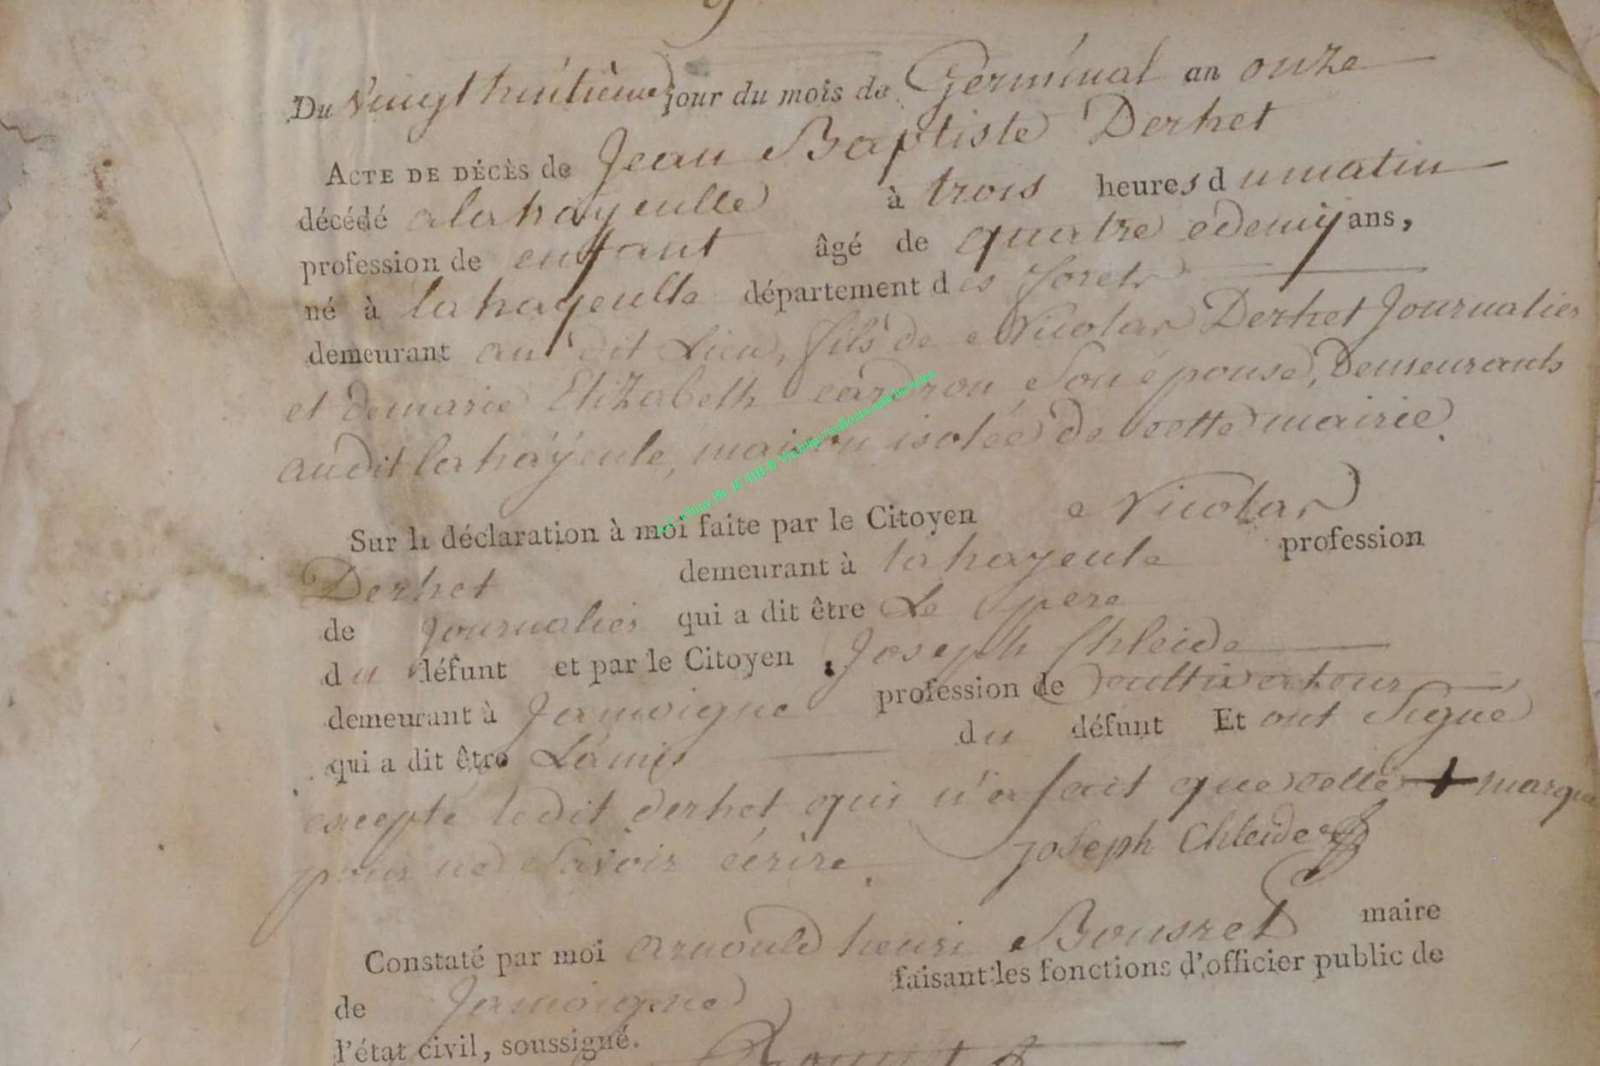 Du vingt huitième jour du mois de Germinal an onze
ACTE DE DÉCÈS de Jean Baptiste Derhet
décédé a la hayeulle à trois heures du matin
profession de enfant âgé de quatre e demij ans,
né à la hayeulle département des forets
demeurant au dit Lieu, fils de Nicolas Derhet Journalier
et de marie Elizabeth cardron son épouse, Demeurants
audit la hayeule, maison isolée de cette mairie.
Sur la déclaration à moi faite par le Citoyen Nicolas
Derhet demeurant à la hayeule profession
de journalier qui a dit être Le pere
du défunt et par le Citoyen Joseph Chleide
demeurant à Jamoigne profession de cultivateur
qui a dit être L'amis du défunt Et ont Signé
excepté ledit derhet qui n'a fait que celle + marque
pour ne Savoir écrire. joseph Chleide
Constaté par moi arnould henri Bousret maire
de Jamoigne faisant les fonctions d'officier public de
l'état civil, soussigné.